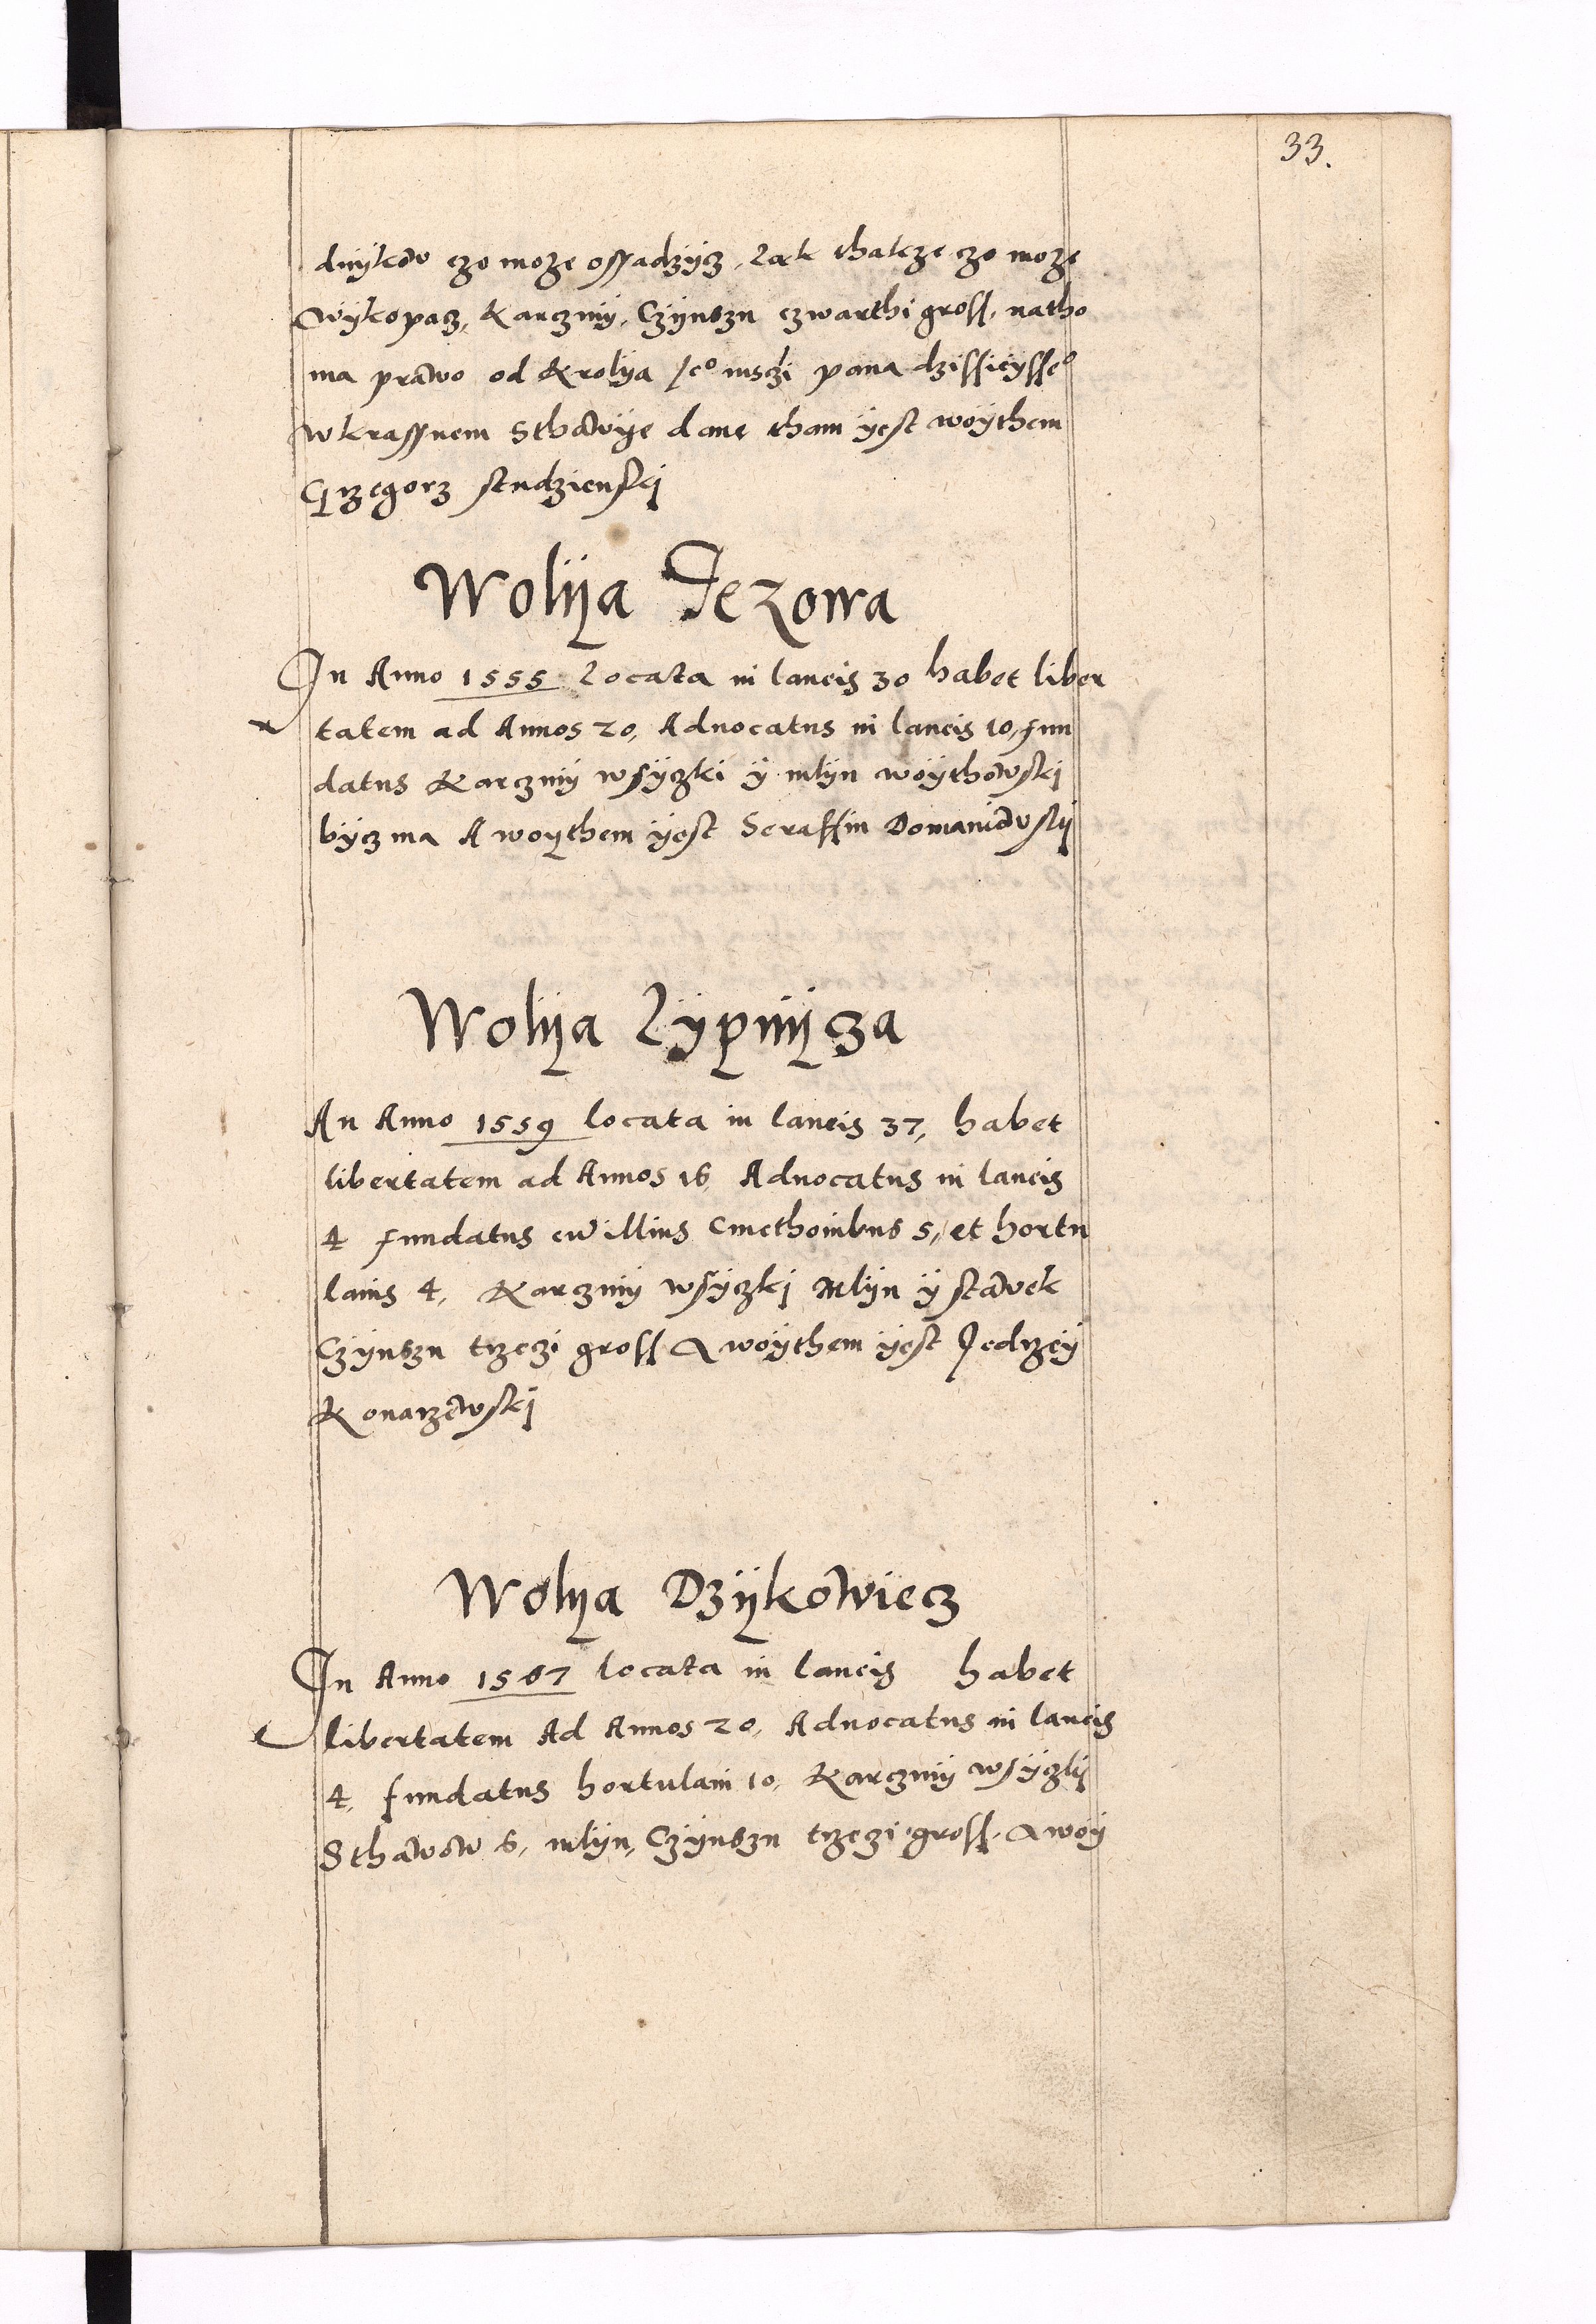 33.
dnÿkow czo moze ossadzÿcz, Lak thakze czo moze
Wÿkopacz, Karczmÿ, Czÿnszu czwarthi gross, natho
ma prawo od Krolÿa Jeº msczi pana dzissieÿsseº
w krassnem Sthawÿe dane tham ÿest woÿthem
Grzegorz studzienskj
Wolÿa Jezowa
In Anno 1555 Locata in laneis 30 habet liber
tatem ad Annos 20, Aduocatus in laneis 10, fun
datus Karczmÿ wsÿczki ÿ mlÿn woÿthowskj
bÿcz ma A woÿthem ÿest Seraffin Domaniowskÿ
Wolÿa Lÿpnÿcza
An Anno 1559 locata in laneis 37, habet
libertatem ad Annos 16, Aduocatus in laneis
4 fundatus cum illius Cmethonibus 5, et hortu
lanis 4, Karczmÿ wsÿczkj Mlÿn ÿ stawek
Czÿnszu trzeczi gross A woÿthem ÿest Jedrzeÿ
Konarzewskj
Wolÿa Dzÿkowiecz
In Anno 1567 locata in laneis habet
libertatem Ad Annos 20, Aduocatus in laneis
4, fundatus hortulani 10, Karczmÿ wsÿczkÿ
Sthawow 6, mlÿn, Czÿnszu trzeczi gross, A woÿ